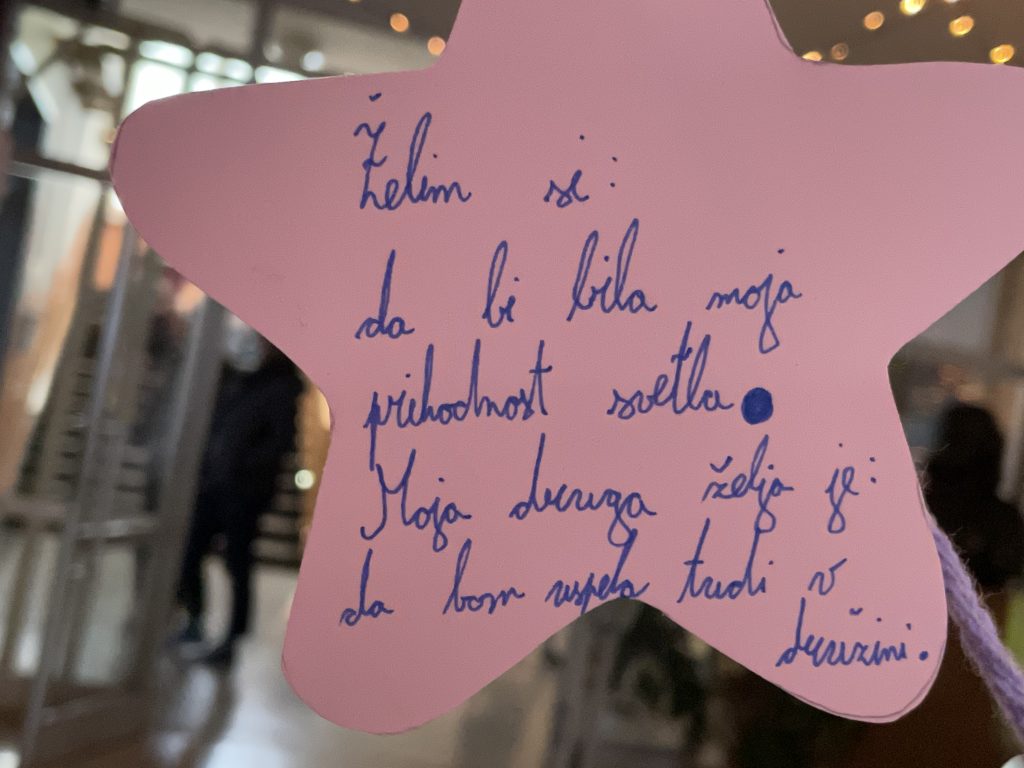 Želim si:
da bi bila moja
prihodnost svetla.
Moja druga želja je:
da bom uspela tudi v
družini.